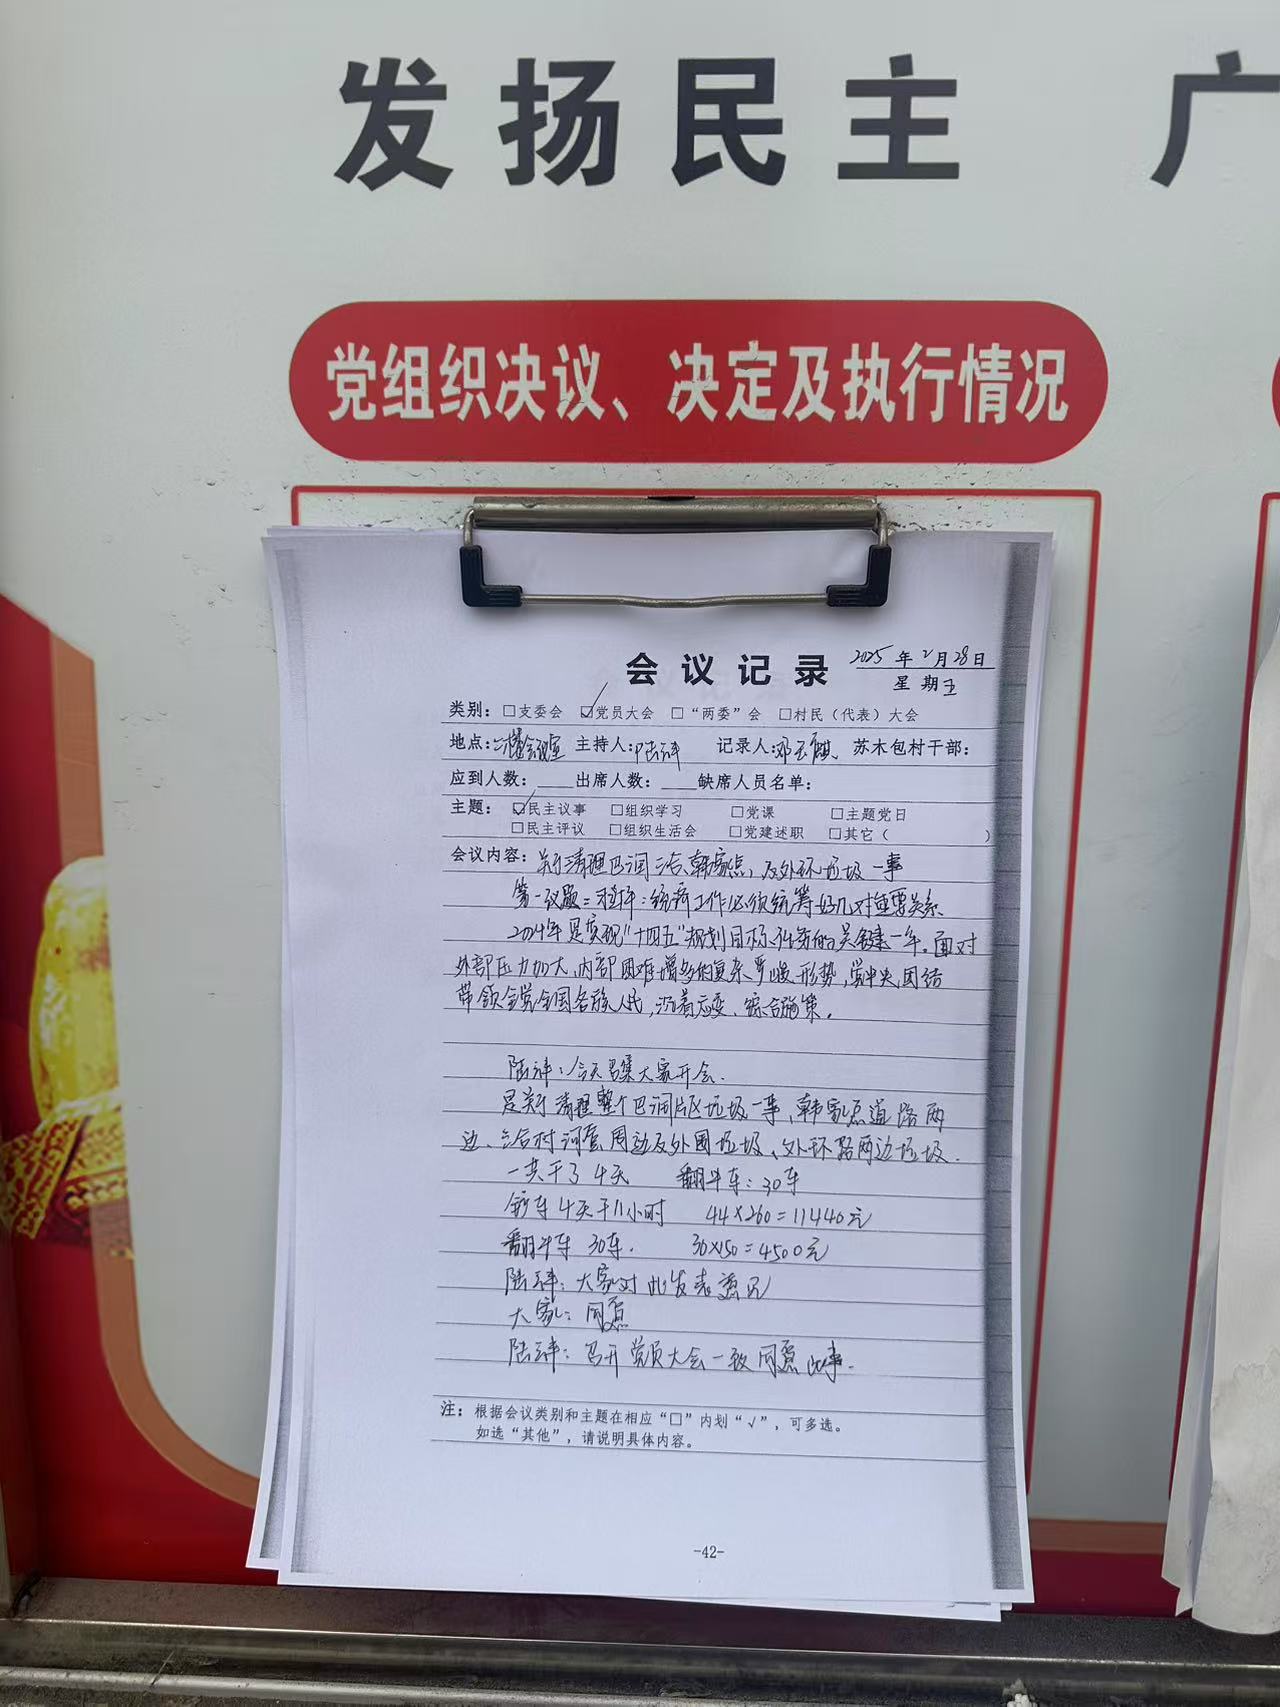 发扬民主 广
党组织决议、决定及执行情况
会议记录 2025年2月28日
星期五
类别：□支委会 ☑党员大会 □“两委”会 □村民（代表）大会
地点：三楼会议室 主持人：陆祥 记录人：邓玉麒 苏木包村干部：
应到人数：____出席人数：____缺席人员名单：
主题：☑民主议事 □组织学习 □党课 □主题党日
□民主评议 □组织生活会 □党建述职 □其它（ ）
会议内容：关于清理巴润三合、韩家点，及外环垃圾一事
第一议题：：经济工作必须统筹好几对重要关系
2024年是实现“十四五”规划目标任务的关键一年。面对
外部压力加大、内部困难增多的复杂严峻形势，党中央团结
带领全党全国各族人民，沉着应变、综合施策。
陆祥：今天召集大家开会.
是关于清理整个巴润片区垃圾一事，韩家点道路两
边、三合村河套周边及外围垃圾、外环路两边垃圾.
一共干了4天 翻斗车：30车
铲车4天干11小时 44×260=11440元
翻斗车 30车. 30×150=4500元
陆祥：大家对此发表意见
大家：同意
陆祥：召开党员大会一致同意此事.
注：根据会议类别和主题在相应“□”内划“√”，可多选。
如选“其他”，请说明具体内容。
-42-